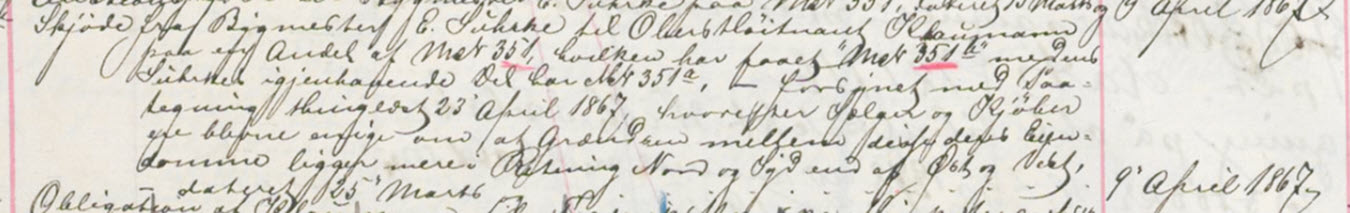 E. Suhrke paa Mat 351, dateret 15 Marts og 9 April 1867
Skjøde fra Bygmester E. Suhrke til Oberstløitnant Klaumann
paa en Andel af Mat 351, hvilken har faaet "Mat 351 b" medens
Suhrkes igjenhavende Del har Mat 351a, – forsynet med Paa-
tegning thinglæst 23 April 1867, hvorefter Sælger og Kjöber
ere blevne enige om at Grændsen mellem disse deres Eien-
domme ligger mere i Retning Nord og Syd end af Øst og Vest,
dateret 25 Marts 9' April 1867
Obligation af